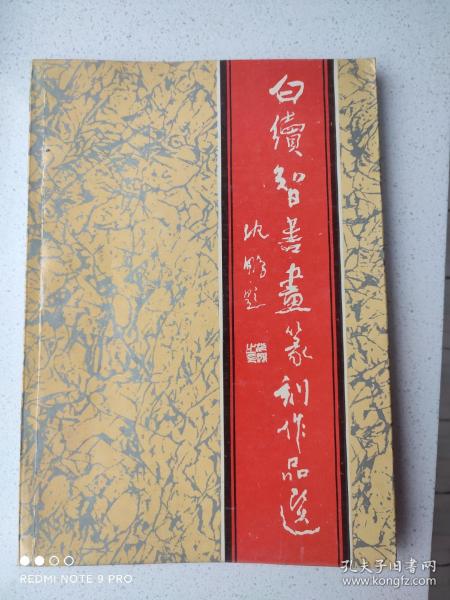 白續智書畫篆刻作品選
沈鵬題
REDMI NOTE 9 PRO
孔夫子旧书网
www.kongfz.com